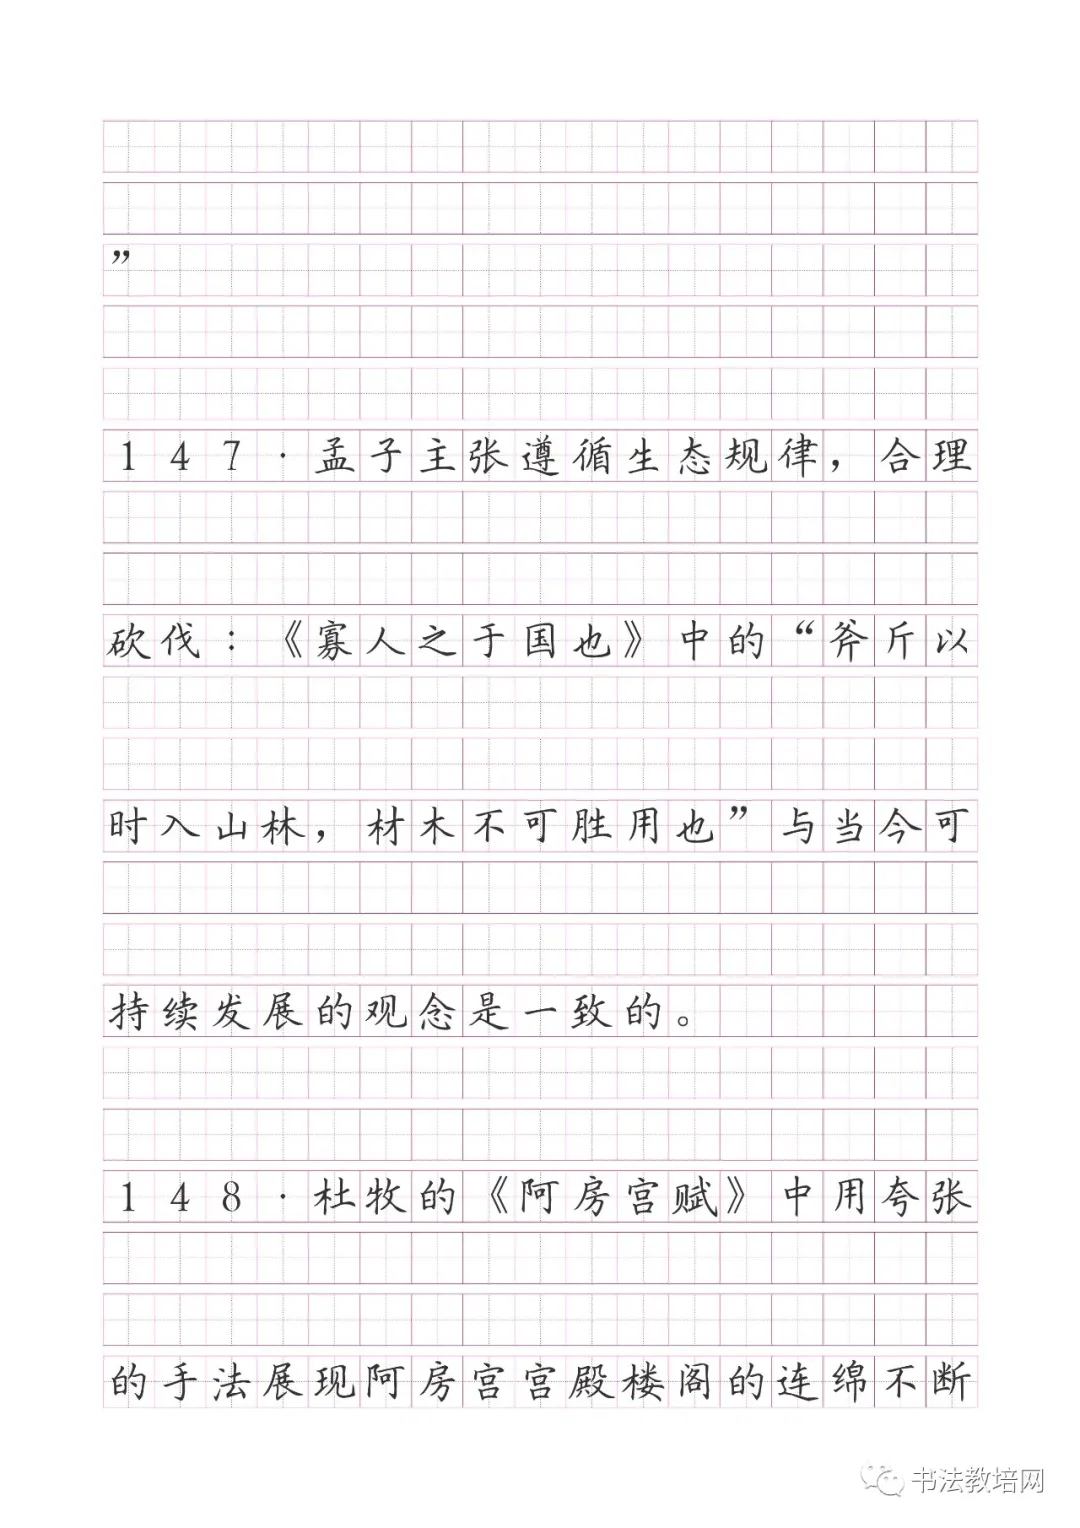 ”
147·孟子主张遵循生态规律，合理
砍伐：《寡人之于国也》中的“斧斤以
时入山林，材木不可胜用也”与当今可
持续发展的观念是一致的。
148·杜牧的《阿房宫赋》中用夸张
的手法展现阿房宫宫殿楼阁的连绵不断
书法教培网